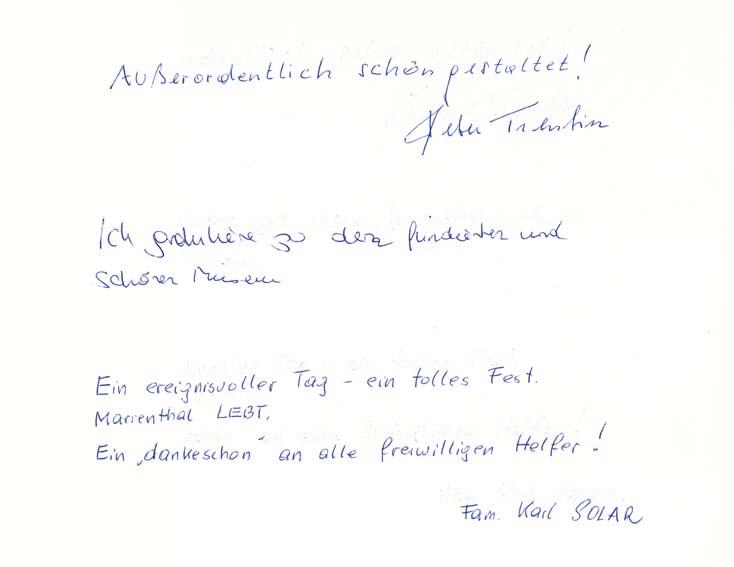 Außerordentlich schön gestaltet!
Peter Trentin
Ich graduliere zu dem fundierten und
schönen Museum
Ein ereignisvoller Tag – ein tolles Fest.
Marienthal LEBT.
Ein „dankeschön“ an alle freiwilligen Helfer!
Fam. Karl SOLAR